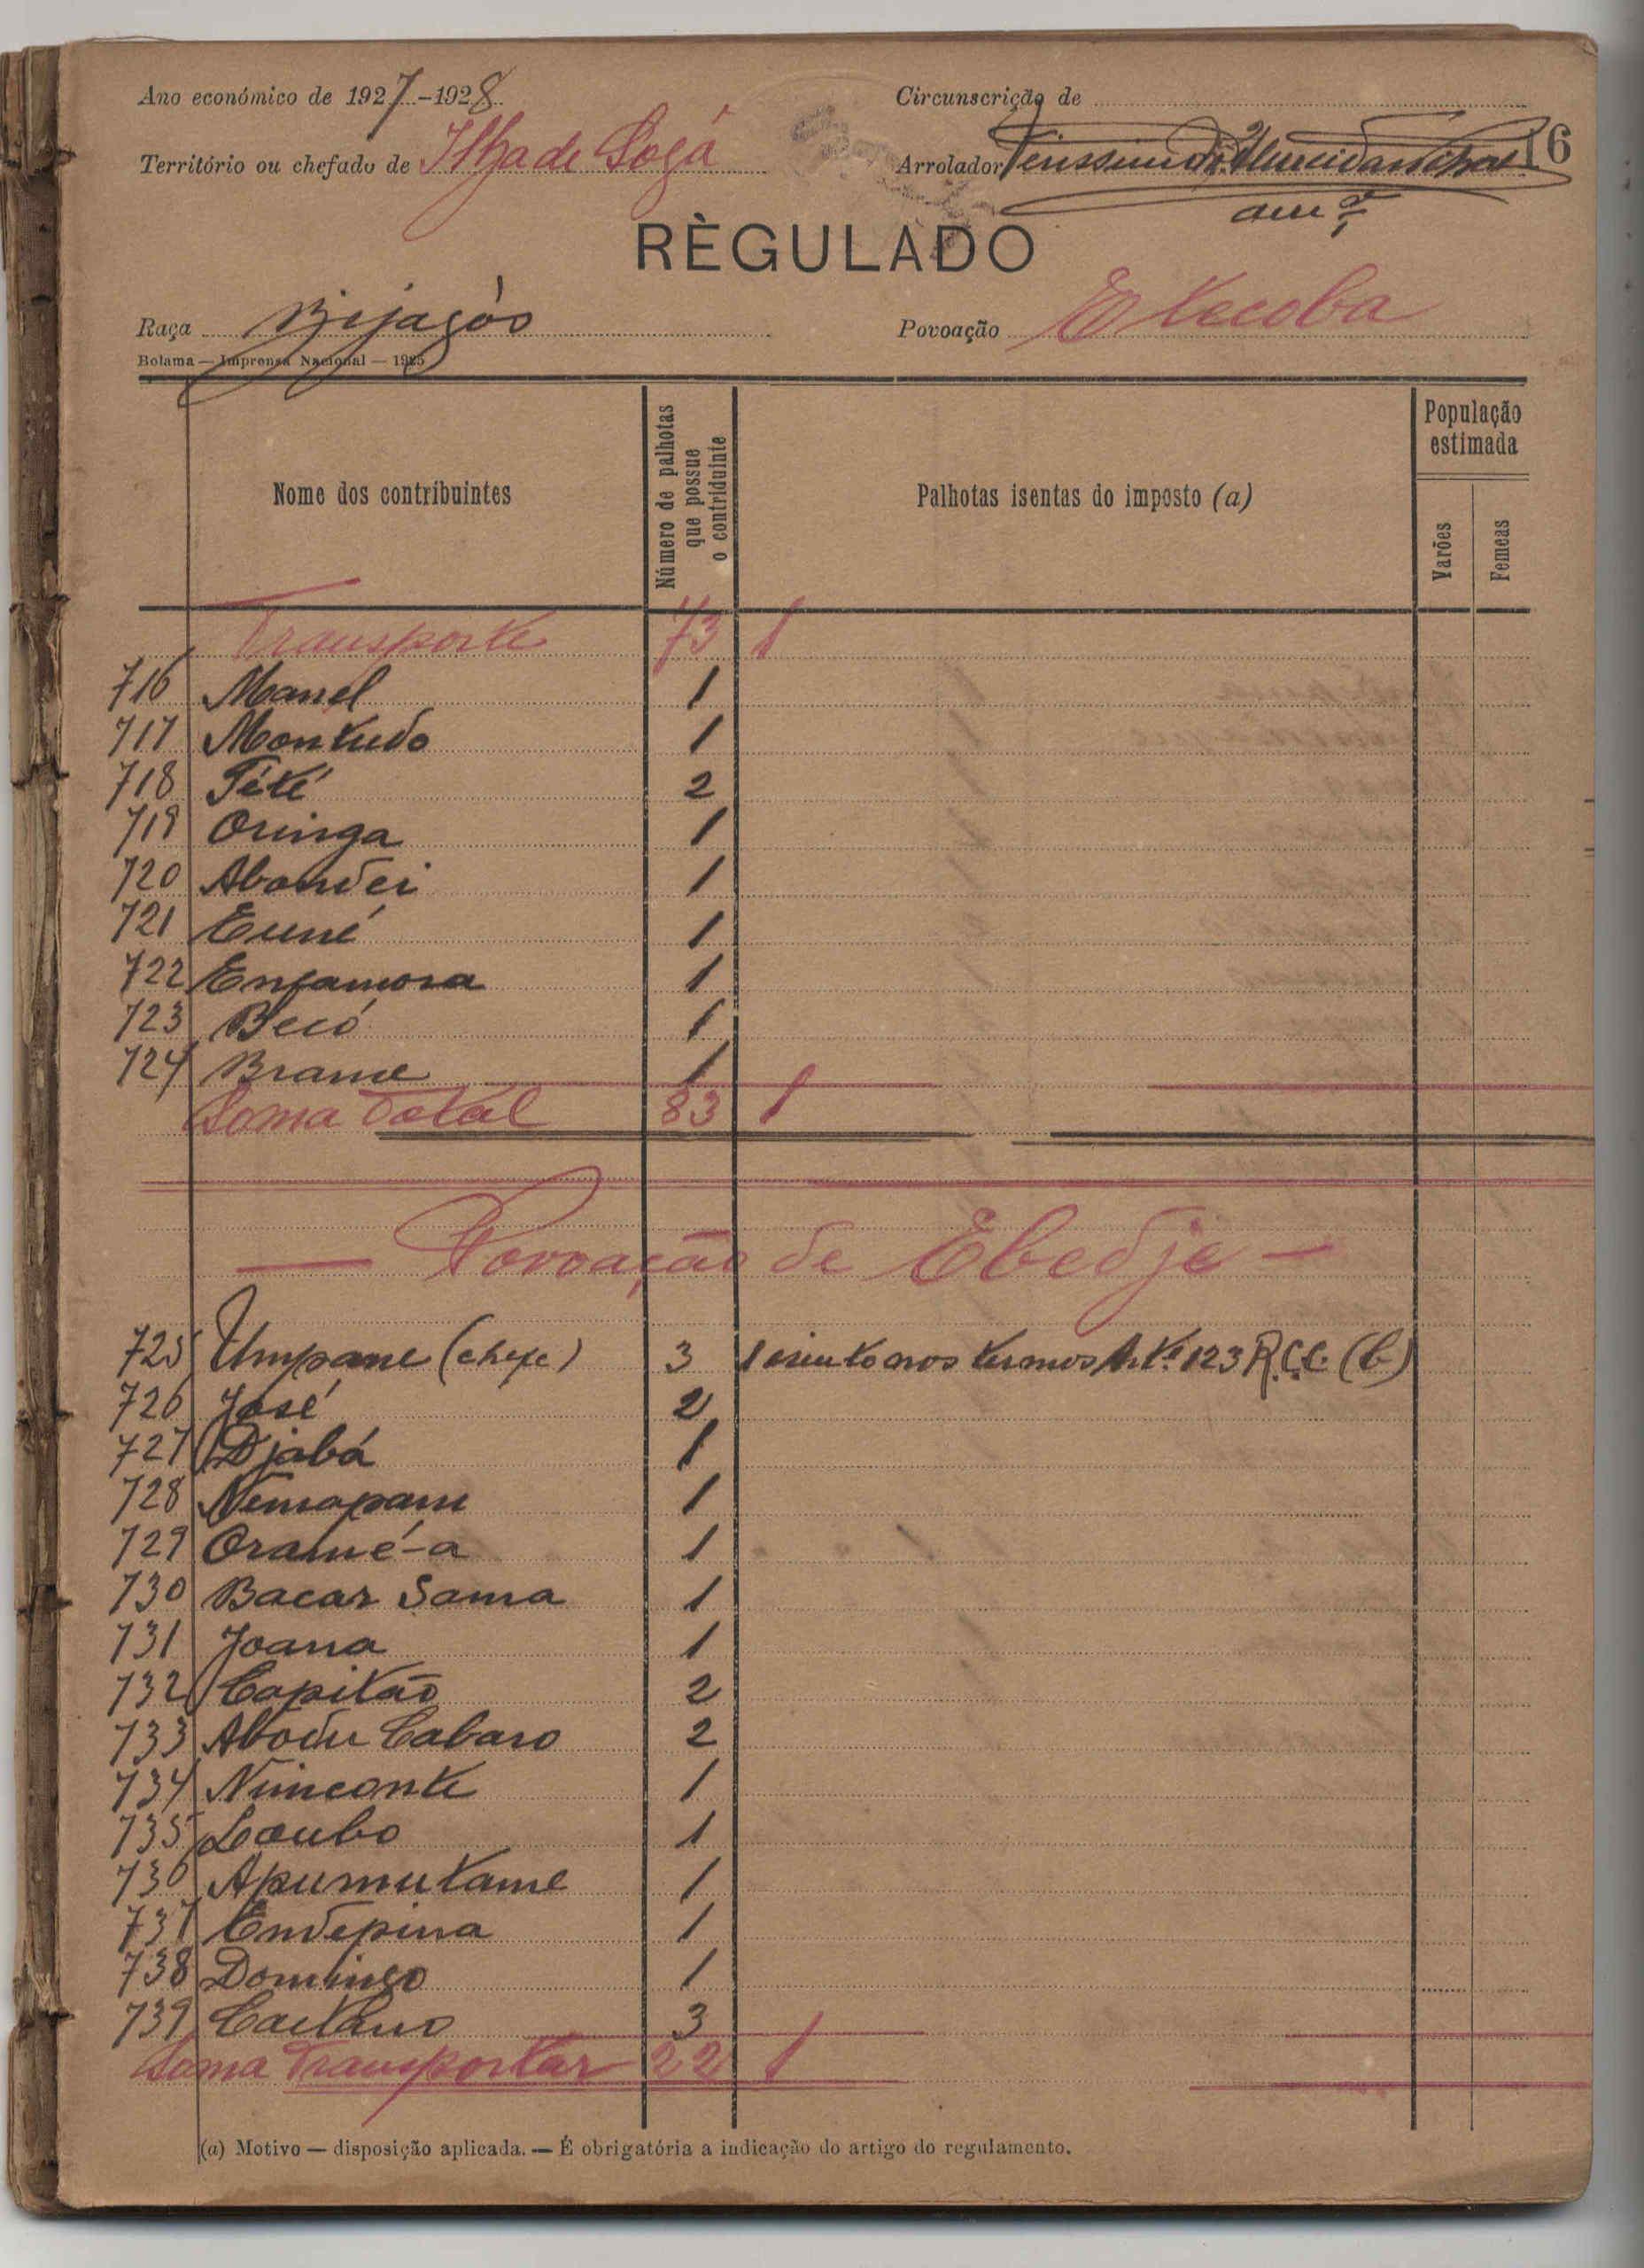 Ano económico de 1927-1928
Circunscrição de
16
Território ou chefado de Ilha de Sogá
Arrolador
RÈGULADO
Raça Bijagós
Povoação Etecoba
Bolama — Imprensa Nacional — 1925
Nome dos contribuintes
Número de palhotas que possue o contriduinte
Palhotas isentas do imposto (a)
População estimada
Varões
Femeas
Transporte 73 1
716 Manel 1
717 Montudo 1
718 Tété 2
719 Oringa 1
720 Abondei 1
721 Euné 1
722 Enjamora 1
723 Becó 1
724 Brame 1
Soma Total 83 1
— Povoação de Ebedje —
725 Umpane (chefe) 3 1 isento nos termos Artº 123 R.C.C. (b)
726 José 2
727 Djabá 1
728 Nemapam 1
729 Oramé-a 1
730 Bacar Sama 1
731 Joana 1
732 Capitão 2
733 Abodu Cabaro 2
734 Nimconte 1
735 Loubo 1
736 Apumutame 1
737 Endepina 1
738 Domingo 1
739 Caetano 3
Soma Transportar 22 1
(a) Motivo — disposição aplicada. — É obrigatória a indicação do artigo do regulamento.